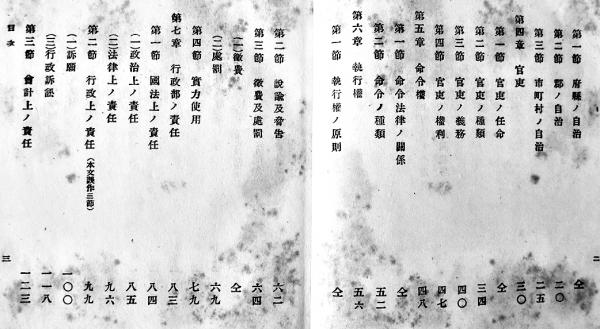 第一節 府縣ノ自治 仝
第二節 郡ノ自治 二〇
第三節 市町村ノ自治 二五
第四章 官吏 三〇
第一節 官吏ノ任命 仝
第二節 官吏ノ種類 三四
第三節 官吏ノ義務 四〇
第四節 官吏ノ權利 四八
第五章 命令權 仝
第一節 命令法律ノ關係 仝
第二節 命令ノ種類 五二
第六章 執行權 五六
第一節 執行權ノ原則 仝
二
第二節 說諭及脅告 六二
第三節 徵費及處罰 六四
(一)徵費 仝
(二)處罰 六九
第四節 實力使用 七九
第七章 行政部ノ責任 八三
第一節 國法上ノ責任 八四
(一)政治上ノ責任 八五
(二)法律上ノ責任 九六
第二節 行政上ノ責任(本文誤作三節) 九九
(一)訴願 一〇〇
(二)行政訴訟 一一八
第三節 會計上ノ責任 一二三
目次
三